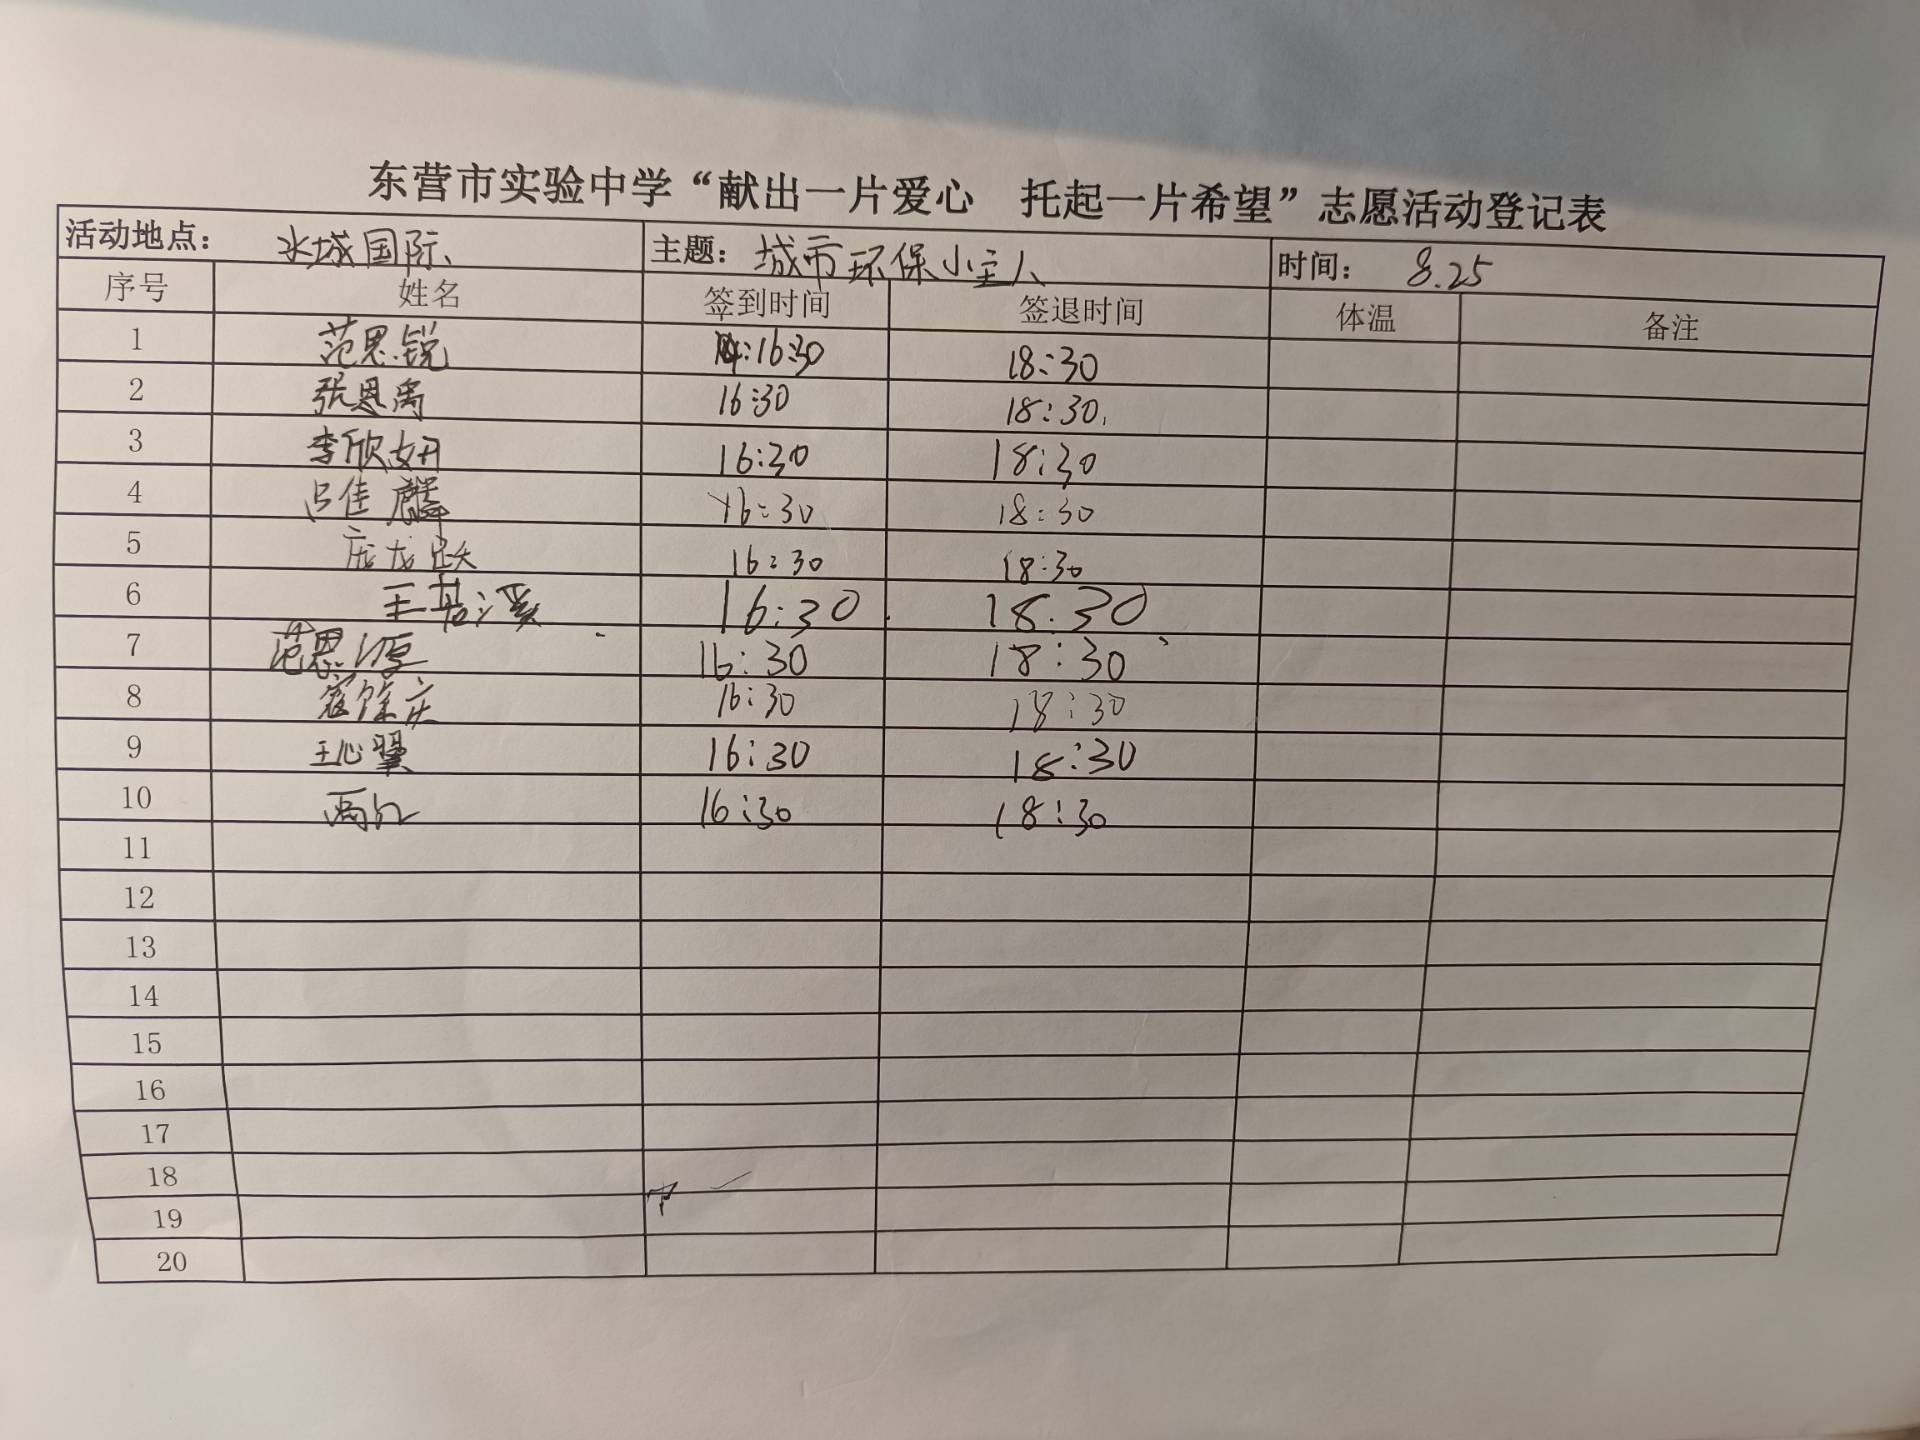 东营市实验中学“献出一片爱心 托起一片希望”志愿活动登记表
活动地点： 水城国际 主题： 城市环保小主人 时间： 8.25
序号 姓名 签到时间 签退时间 体温 备注
1 范思锐 16:30 18:30
2 张恩禹 16:30 18:30
3 李欣妍 16:30 18:30
4 吕佳麟 16:30 18:30
5 庞龙跃 16:30 18:30
6 王若溪 16:30 18:30
7 范思源 16:30 18:30
8 16:30 18:30
9 王心翼 16:30 18:30
10 16:30 18:30
11
12
13
14
15
16
17
18
19
20